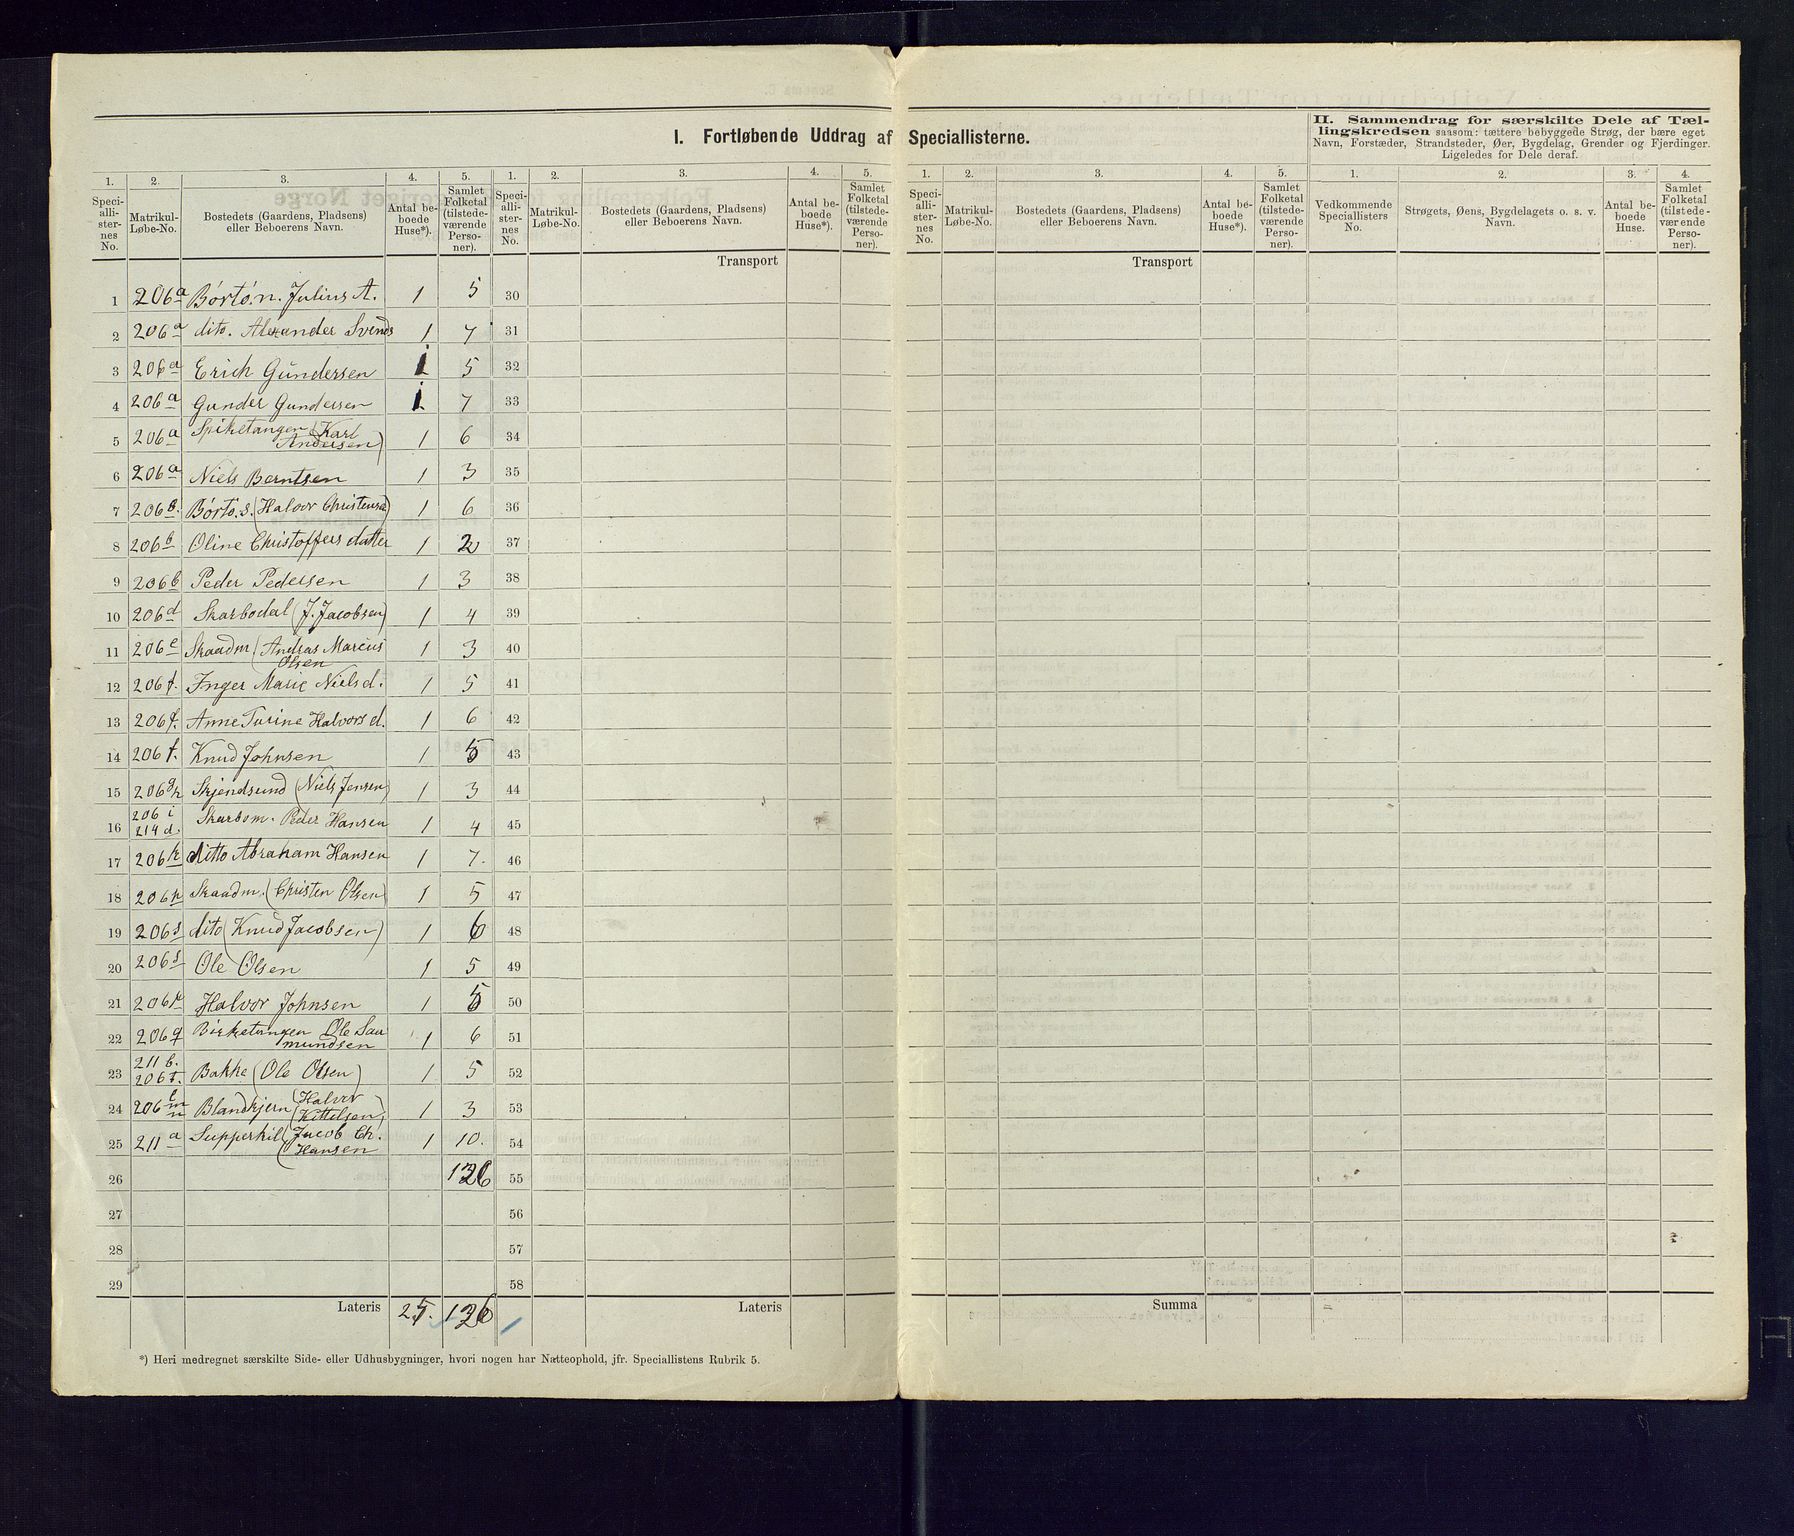 I. Fortløbende Uddrag af Speciallisterne.
II. Sammendrag for særskilte Dele af Tæl-
lingskredsen saasom: tættere bebyggede Strøg, der bære eget
Navn, Forstæder, Strandsteder, Øer, Bygdelag, Grender og Fjerdinger.
Ligeledes for Dele deraf.
1. 2. 3. 4. 5. 1. 2. 3. 4. 5. 1. 2. 3. 4. 5. 1. 2. 3. 4.
Speci-
alli-
ster-
nes
No.
Matrikul-
Løbe-No.
Bostedets (Gaardens, Pladsens)
eller Beboerens Navn.
Antal be-
boede
Huse*).
Samlet
Folketal
(tilstede-
værende
Perso-
ner).
Speci-
alli-
ster-
nes
No.
Matrikul-
Løbe-No.
Bostedets (Gaardens, Pladsens)
eller Beboerens Navn.
Antal be-
boede
Huse*).
Samlet
Folketal
(tilstede-
værende
Perso-
ner).
Speci-
alli-
ster-
nes
No.
Matrikul-
Løbe-No.
Bostedets (Gaardens, Pladsens)
eller Beboerens Navn.
Antal be-
boede
Huse*).
Samlet
Folketal
(tilstede-
værende
Perso-
ner).
Vedkommende
Speciallisters
No.
Strøgets, Øens, Bygdelagets o. s. v.
Navn.
Antal be-
boede
Huse.
Samlet
Folketal
(tilstede-
værende
Perso-
ner).
Transport Transport
1 206a Börtö. n. Julius A. 1 5 30
2 206a dito. Alexander Svends 1 7 31
3 206a Erich Gundersen 1 5 32
4 206a Gunder Gundersen 1 7 33
5 206a Spiketangen (Karl
Andersen) 1 6 34
6 206a Niels Berntsen 1 3 35
7 206b. Börtö. s. (Halvor Christensen) 1 6 36
8 206b Oline Christoffersdatter 1 2 37
9 206b Peder Pedersen 1 3 38
10 206d Skarbodal (J. Jacobsen) 1 4 39
11 206e Skaadm (Andras Marcus
Olsen 1 3 40
12 206f. Inger Marie Nielsd. 1 5 41
13 206f. Anne Turine Halvorsd. 1 6 42
14 206f. Knud Johnsen 1 5 43
15 206gh Skjendsund (Niels Jensen) 1 3 44
206 i
16 214 d. Skarbom. Peder Hansen 1 4 45
17 206k ditto Abraham Hansen 1 7. 46
18 206p Skaadm. (Christen Olsen) 1 5 47
19 206s dito (Knud Jacobsen) 1 6 48
20 206s Ole Olsen 1 5 49
21 206p Halvor Johnsen 1 5 50
22 206q Birketangen Ole Saa
mundsen 1 6 51
211 b.
23 206t. Bakke (Ole Olsen) 1 5 52
24 206 l m n Blandkjern (Halvor
Kittelsen) 1 3 53
25 211a Supperkil (Jacob Ch.
Hansen 1 10. 54
26 126 55
27 56
28 57
29 58
Lateris 25. 126 Lateris Summa
*) Heri medregnet særskilte Side- eller Udhusbygninger, hvori nogen har Natteophold, jfr. Speciallistens Rubrik 5.